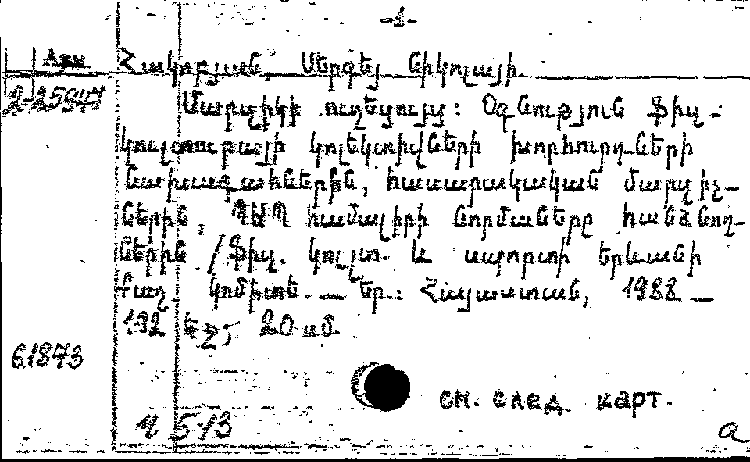 -1-
Հակոբյան, Սերգեյ Նիկոլայի
2-25947
Մարզիկի ուղեցույց: Օգնություն ֆիզ-
կուլտուրայի կոլեկտիվների խորհուրդների
նախագահներին, հասարակական մարզիչ-
ներին, ՊԱՊ համալիրի նորմաները հանձնող-
ներին /Ֆիզ. կուլտ. և սպորտի Երևանի
քաղ. կոմիտե. — Եր.: Հայաստան, 1988 —
192 էջ; 20 սմ.
61873
см. след. карт.
5-13
а